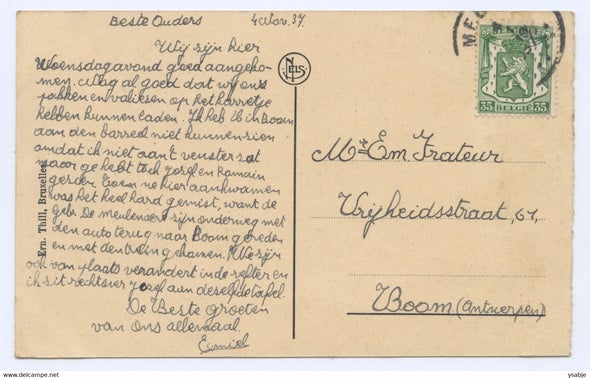 Beste Ouders 4 Nov. 37.
Wij zijn hier
Woensdagavond goed aangeko-
men. Mag al goed dat wij ons
pakken en valiesen op het karretje
hebben kunnen laden. Ik heb U in Boom
aan den barreel niet kunnen zien
omdat ik niet aan't venster zat
maar ge hebt toch Jozef en Romain
gezien. Toen we hier aankwamen
was het heel hard gemist, want de
gebr. De Meulenaer zijn onderweg met
den auto terug naar Boom gereden
en met den trein gekomen. We zijn
ook van plaats verandert in de refter en
ik zit rechtover Jozef aan dezelfde tafel.
De Beste groeten
van ons allemaal.
Emiel
NELS
Ern. Thill, Bruxelles.
BELGIQUE
35 BELGIË 35
Mr Em Frateur
Vrijheidsstraat, 61,
Boom (Antwerpen)
www.delcampe.net
ysabje